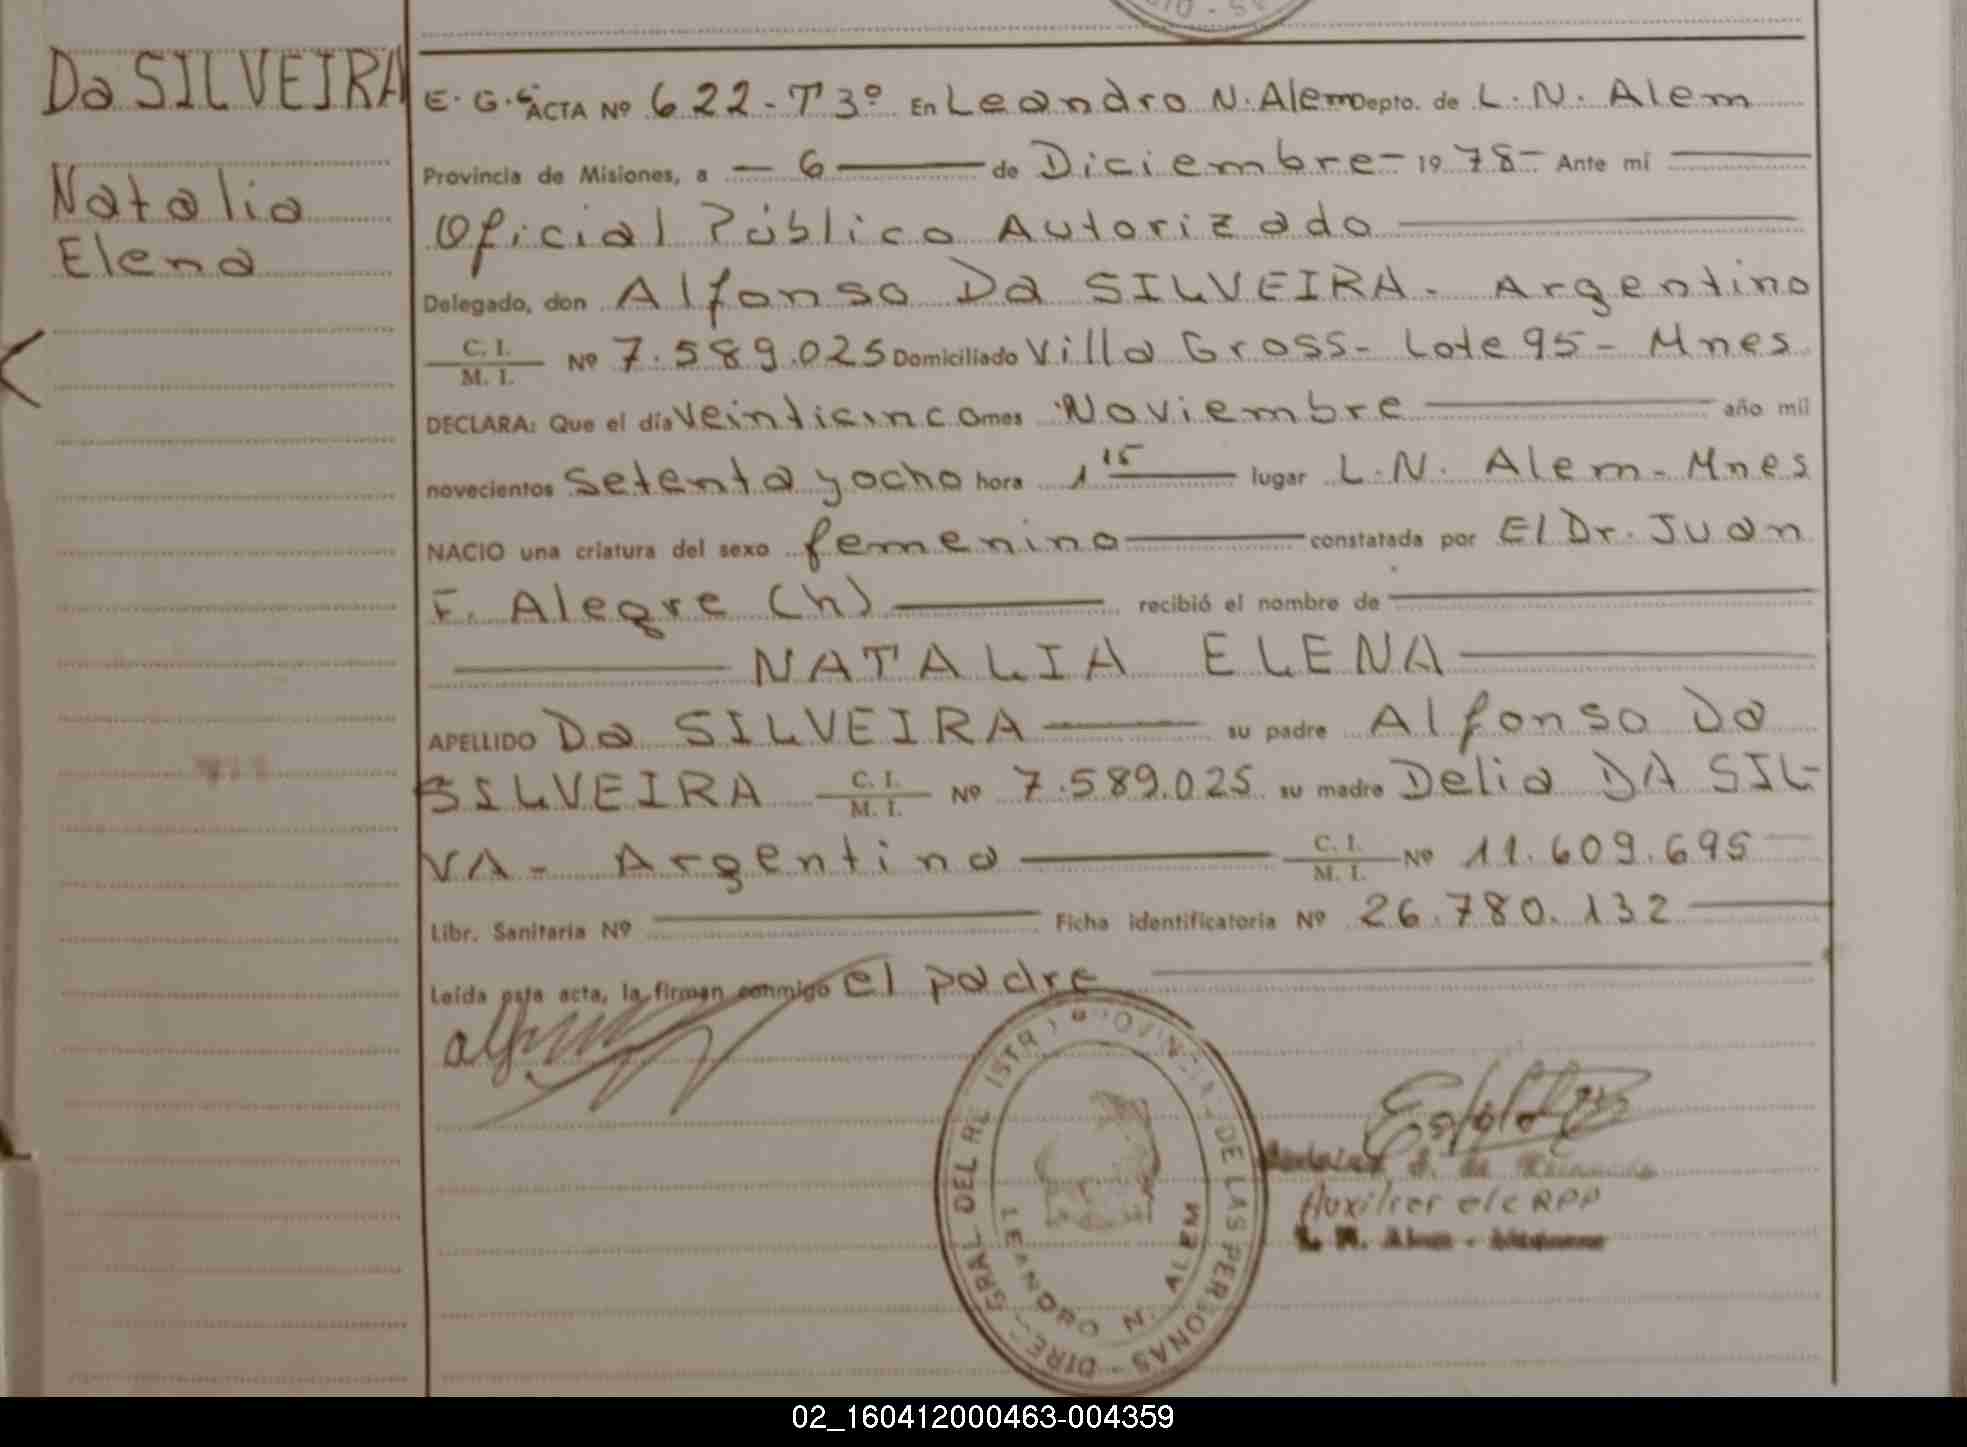 Da SILVEIRA
Natalia
Elena
E. G. C. ACTA Nº 622 - T 3º En Leandro N. Alem Depto. de L. N. Alem
Provincia de Misiones, a - 6 - de Diciembre - 1978 - Ante mí
Oficial Público Autorizado
Delegado, don Alfonso Da SILVEIRA - Argentino
C. I. / M. I. Nº 7.589.025 Domiciliado Villa Gross - Lote 95 - Mnes
DECLARA: Que el día veinticinco mes Noviembre año mil
novecientos setenta y ocho hora 1 15 lugar L. N. Alem - Mnes
NACIO una criatura del sexo femenino constatada por El Dr. Juan
F. Alegre (h) recibió el nombre de
NATALIA ELENA
APELLIDO Da SILVEIRA su padre Alfonso Da
SILVEIRA C. I. / M. I. Nº 7.589.025 su madre Delia DA SIL-
VA - Argentina C. I. / M. I. Nº 11.609.695
Libr. Sanitaria Nº Ficha identificatoria Nº 26.780.132
Leída esta acta, la firman conmigo el padre
DIRE GRAL DEL RE ISTR PROVINCIAL DE LAS PERSONAS
LEANDRO N. ALEM
Auxiliar e/c RPP
02_160412000463-004359